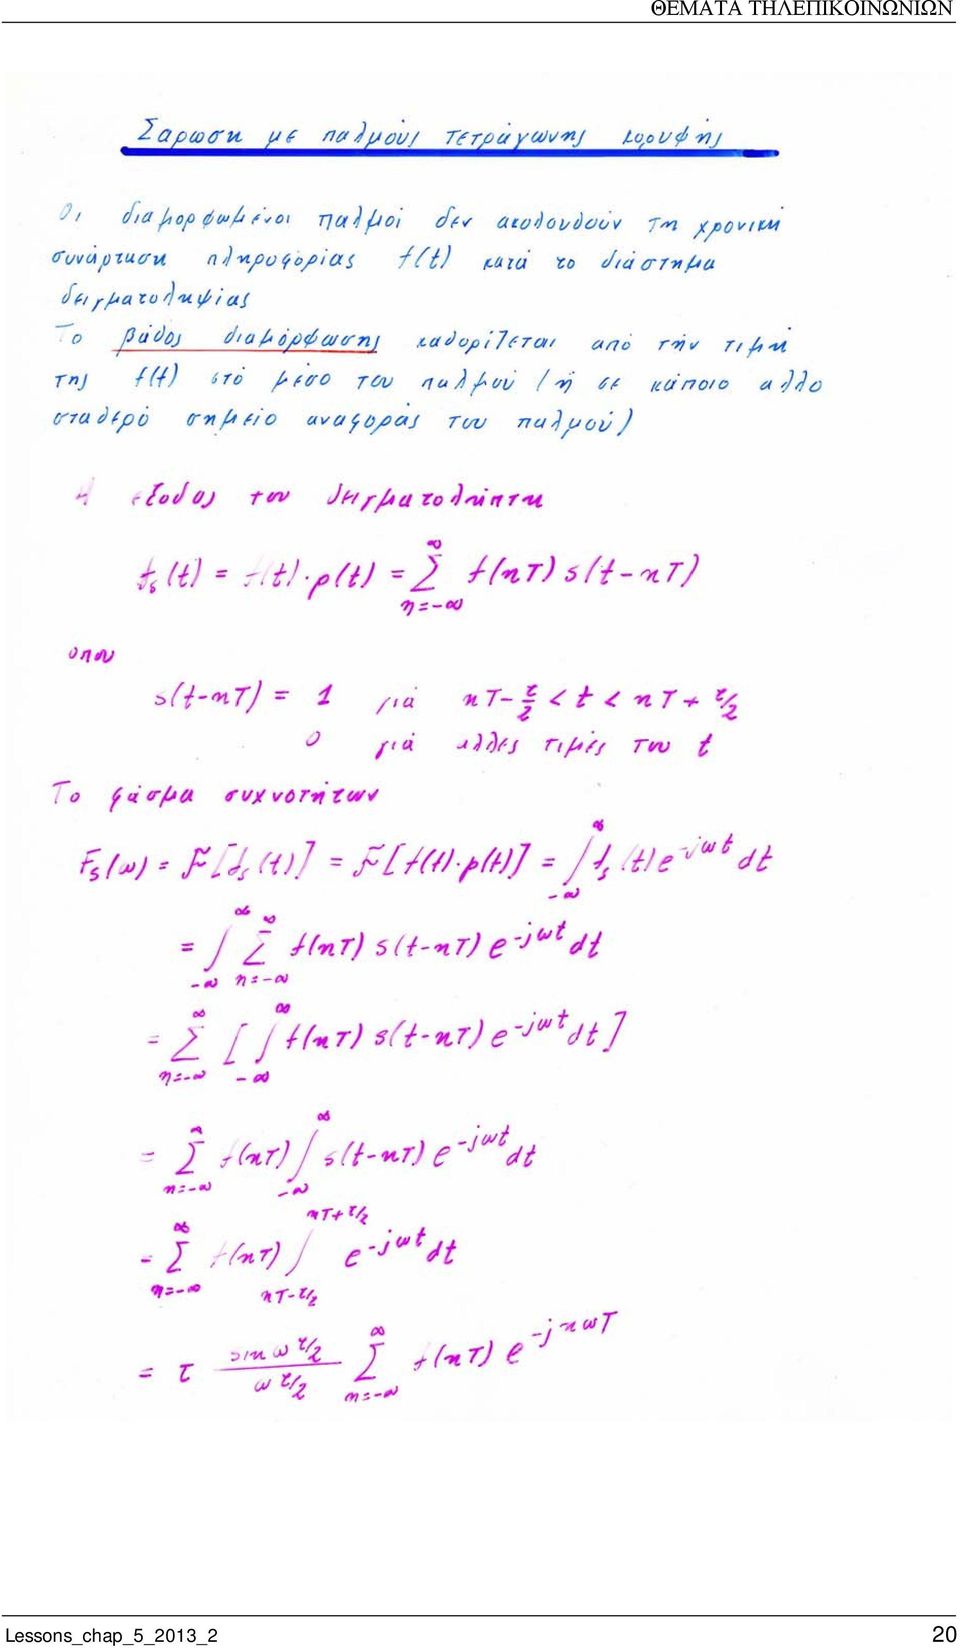 ΘΕΜΑΤΑ ΤΗΛΕΠΙΚΟΙΝΩΝΙΩΝ
Σαρωση με παλμούς τετράγωνης κορυφής
Οι διαμορφωμένοι παλμοί δεν ακολουθούν τη χρονική
συνάρτηση πληροφορίας f(t) κατά το διάστημα
δειγματοληψίας
Το βάθος διαμόρφωσης καθορίζεται από τήν τιμή
της f(t) στό μέσο του παλμού (ή σε κάποιο αλλο
σταθερό σημείο αναφοράς του παλμού)
Η εξοδος του δειγματολήπτη
f_s(t) = f(t)·p(t) = Σ_{n=-∞}^{∞} f(nT) s(t-nT)
οπου
s(t-nT) = 1 γιά nT-τ/2 < t < nT+τ/2
0 γιά αλλες τιμές του t
Το φάσμα συχνοτήτων
F_s(ω) = F[f_s(t)] = F[f(t)·p(t)] = ∫_{-∞}^{∞} f_s(t) e^{-jωt} dt
= ∫_{-∞}^{∞} Σ_{n=-∞}^{∞} f(nT) s(t-nT) e^{-jωt} dt
= Σ_{n=-∞}^{∞} [∫_{-∞}^{∞} f(nT) s(t-nT) e^{-jωt} dt]
= Σ_{n=-∞}^{∞} f(nT) ∫_{-∞}^{∞} s(t-nT) e^{-jωt} dt
= Σ_{n=-∞}^{∞} f(nT) ∫_{nT-τ/2}^{nT+τ/2} e^{-jωt} dt
= τ (sin ω τ/2)/(ω τ/2) Σ_{n=-∞}^{∞} f(nT) e^{-jnωT}
Lessons_chap_5_2013_2 20